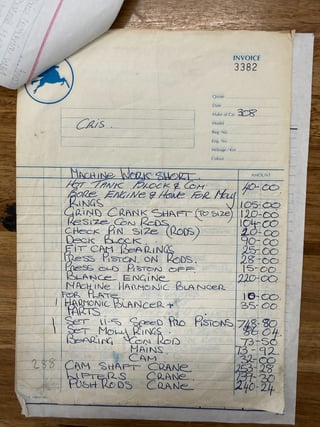 INVOICE
3382
Quote
Date
Make of Car 308
Model
Reg. No.
Eng. No.
Mileage / Km
Colour
CRIS.
AMOUNT
MACHINE WORK SHORT.
HOT TANK BLOCK & COM 40-00
BORE ENGINE & HONE FOR MOLY
RINGS 105-00
GRIND CRANK SHAFT (TO SIZE) 120-00
RESIZE CON RODS 104-00
CHECK PIN SIZE (RODS) 20-00
DECK BLOCK 90-00
FIT CAM BEARINGS 25-00
PRESS PISTON ON RODS. 28-00
PRESS OLD PISTON OFF 15-00
BLANCE ENGINE 220-00
MACHINE HARMONIC BLANCER
FOR PLATE 10-00
HARMONIC BLANCER + 35-00
PARTS
1 SET 11-5 SPEED PRO PISTONS 748-80
SET MOLY RINGS. 86-04
BEARING CON ROD 73-50
MAINS 92
CAM 32-00
288 CAM SHAFT CRANE 253-28
LIFTERS CRANE
PUSHRODS CRANE 240-24